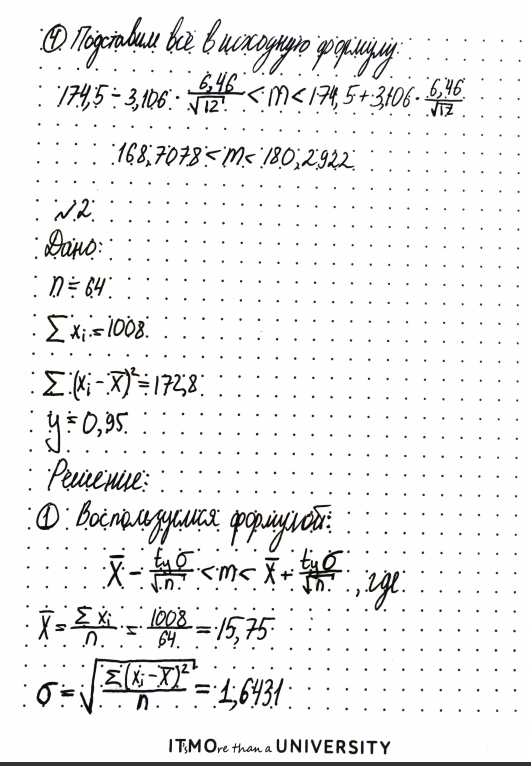 ④ Подставим всё в исходную формулу:
174,5 - 3,106 · 6,46/√12 < m < 174,5 + 3,106 · 6,46/√12
168,7078 < m < 180,2922
√2
Дано:
n = 64
∑ xᵢ = 1008
∑ (xᵢ - x̄)² = 172,8
γ = 0,95
Решение:
① Воспользуемся формулой:
x̄ - tᵧσ/√n < m < x̄ + tᵧσ/√n, где
x̄ = ∑ xᵢ/n = 1008/64 = 15,75
σ = √(∑(xᵢ - x̄)²/n) = 1,6431
IT'sMOre than a UNIVERSITY